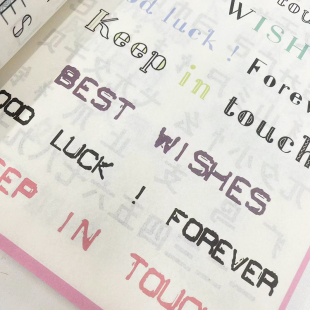 touc
od luck! WISH
Keep in touch
Forev
BEST WISHES
OOD LUCK! FOREVER
EEP IN TOUC